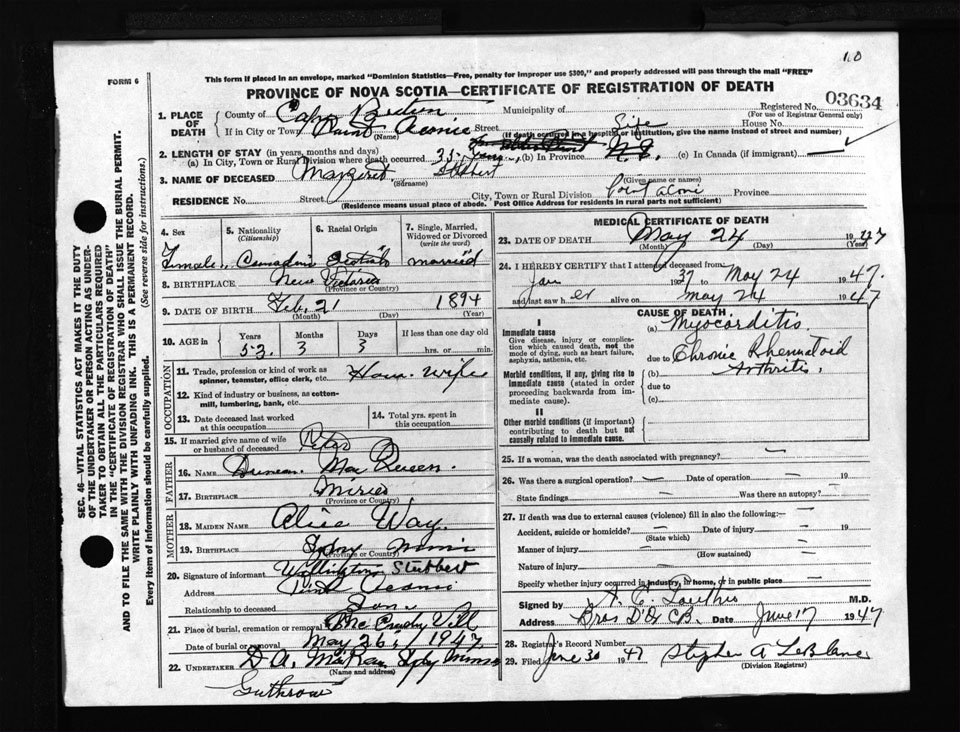 1.0
FORM 6
This form if placed in an envelope, marked "Dominion Statistics—Free, penalty for improper use $300," and properly addressed will pass through the mail "FREE"
PROVINCE OF NOVA SCOTIA—CERTIFICATE OF REGISTRATION OF DEATH
Registered No. 03634
(For use of Registrar General only)
1. PLACE OF DEATH
County of Cape Breton Municipality of
If in City or Town Point Aconie Street House No.
(Name) (If death occurred in a hospital or institution, give the name instead of street and number)
2. LENGTH OF STAY (in years, months and days)
(a) In City, Town or Rural Division where death occurred 35 years, (b) In Province Life N.S. (c) In Canada (if immigrant)
3. NAME OF DECEASED Margaret Stubbert
Surname (Given name or names)
RESIDENCE No. Street City, Town or Rural Division Point Aconi Province
(Residence means usual place of abode. Post Office Address for residents in rural parts not sufficient)
4. Sex Female
5. Nationality (Citizenship) Canadian
6. Racial Origin Scotish
7. Single, Married, Widowed or Divorced (write the word) married
8. BIRTHPLACE New Victoria
(Province or Country)
9. DATE OF BIRTH Feb. 21 1894
(Month) (Day) (Year)
10. AGE in Years 53 Months 3 Days 3 If less than one day old hrs. or min.
OCCUPATION
11. Trade, profession or kind of work as spinner, teamster, office clerk, etc. House wife
12. Kind of industry or business, as cotton-mill, lumbering, bank, etc.
13. Date deceased last worked at this occupation
14. Total yrs. spent in this occupation
15. If married give name of wife or husband of deceased Peter
FATHER
16. NAME Duncan MacQueen.
17. BIRTHPLACE
(Province or Country)
MOTHER
18. MAIDEN NAME Alice Way.
19. BIRTHPLACE Sydney Mines
(Province or Country)
20. Signature of informant Stubbert
Address Point Aconi
Relationship to deceased Son
21. Place of burial, cremation or removal
Date of burial or removal May 26, 1947
22. UNDERTAKER D A. Sydney Mines
(Name and address)
Guthrow
MEDICAL CERTIFICATE OF DEATH
23. DATE OF DEATH May 24 1947
(Month) (Day) (Year)
24. I HEREBY CERTIFY that I attended deceased from:
Jan 1937 May 24 1947.
and last saw her alive on May 24 1947
CAUSE OF DEATH
I
Immediate cause
Give disease, injury or complication which caused death, not the mode of dying, such as heart failure, asphyxia, asthenia, etc.
(a) Myocarditis.
due to Chronic Rhematoid
Morbid conditions, if any, giving rise to immediate cause (stated in order proceeding backwards from immediate cause).
(b) Arthritis.
due to
(c)
II
Other morbid conditions (if important) contributing to death but not causally related to immediate cause.
25. If a woman, was the death associated with pregnancy? —
26. Was there a surgical operation? — Date of operation — 19
State findings Was there an autopsy?
27. If death was due to external causes (violence) fill in also the following:—
Accident, suicide or homicide? — Date of injury — 19
(State which)
Manner of injury —
(How sustained)
Nature of injury —
Specify whether injury occurred in industry, in home, or in public place —
Signed by M.D.
Address Date June 17 1947
28. Registrar's Record No.
29. Filed June 30 1947 Stephen A LeBlanc
(Division Registrar)
SEC. 46—VITAL STATISTICS ACT MAKES IT THE DUTY
OF THE UNDERTAKER OR PERSON ACTING AS UNDER-
TAKER TO OBTAIN ALL THE PARTICULARS REQUIRED
IN THE "CERTIFICATE OF REGISTRATION OF DEATH"
AND TO FILE THE SAME WITH THE DIVISION REGISTRAR WHO SHALL ISSUE THE BURIAL PERMIT.
WRITE PLAINLY WITH UNFADING INK. THIS IS A PERMANENT RECORD.
Every item of information should be carefully supplied. (See reverse side for instructions.)